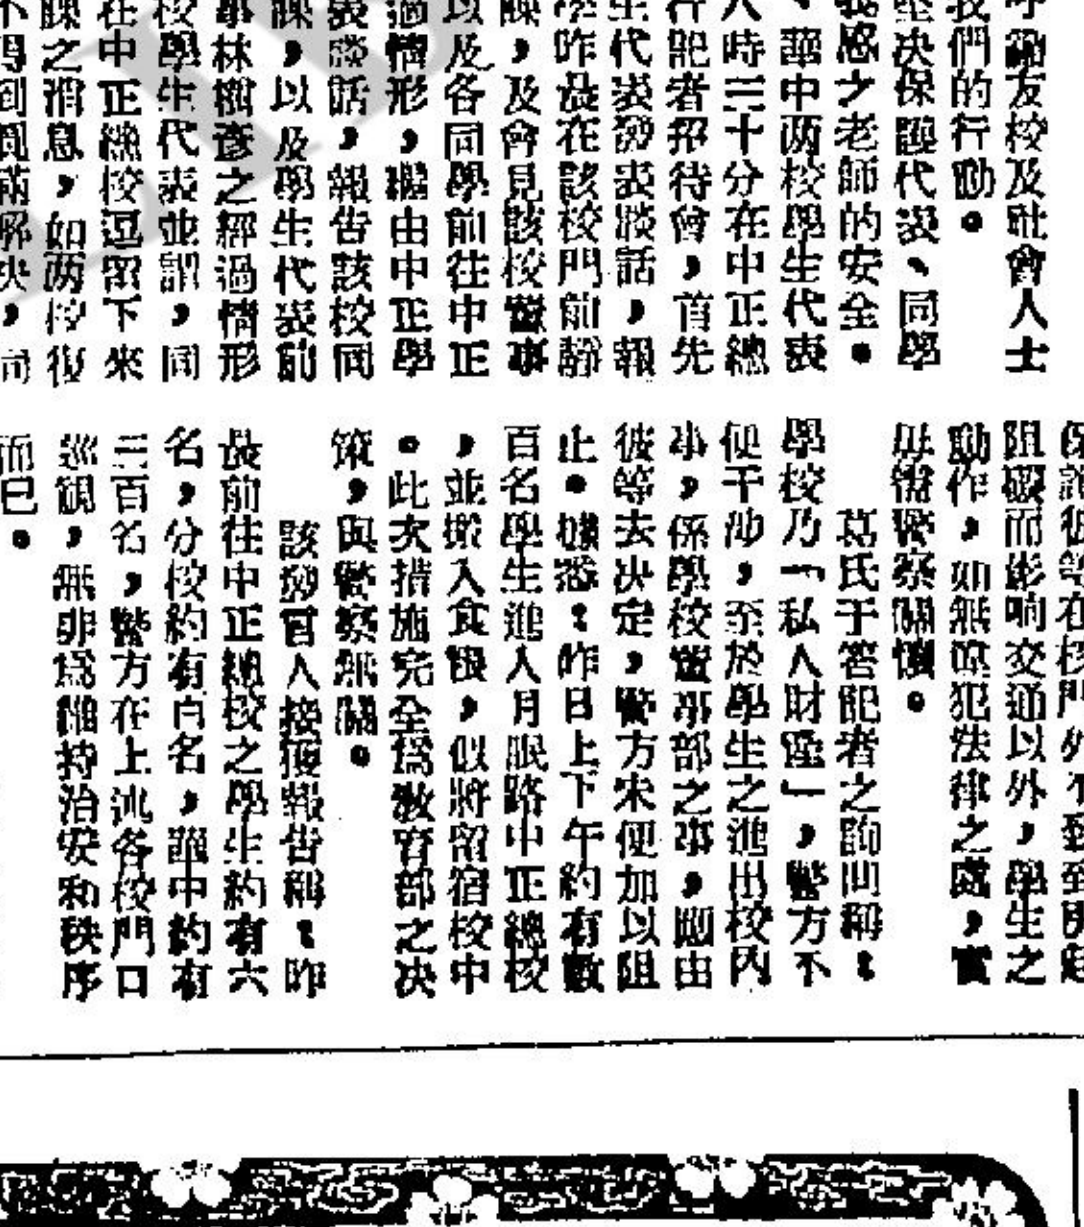 呼籲友校及社會人士
我們的行動。
堅决保護代表、同學
義感之老師的安全。
、華中两校學生代表
人時三十分在中正總
行記者招待會，首先
生代表發表談話，報
學昨晨在該校門前靜
課，及會見該校董事
以及各同學前往中正
過情形，繼由中正學
表談話，報告該校同
課，以及學生代表前
事林樹彥之經過情形
校學生代表並謂，同
在中正總校逗留下來
課之消息，如两校復
不得到圓滿解决，同
保證彼等在校門外不致到
阻礙而影响交通以外，學生之
動作，如無違犯法律之處，實
毋需警察關懷。
葛氏于答記者之詢問稱：
學校乃「私人財產」，警方不
便干涉，至於學生之進出校內
事，係學校董事部之事，應由
彼等去决定，警方未便加以阻
止。據悉：昨日上下午約有數
百名學生進入月眠路中正總校
，並搬入食粮，似將留宿校中
。此次措施完全爲敎育部之决
策，與警察無關。
該發言人接獲報告稱：昨
晨前往中正總校之學生約有六
名，分校約有百名，華中約有
三百名，警方在上述各校門口
巡視，無非爲維持治安和秩序
而已。